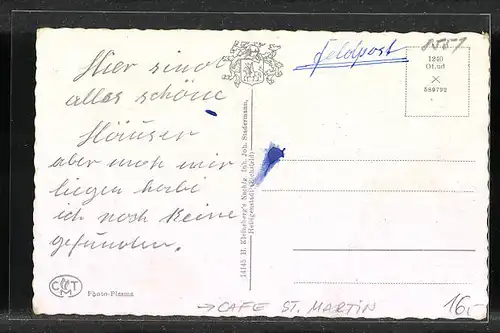 Hier sind
alles schöne
Häuser
aber mich mir
liegen habe
ich noch keine
gefunden.
Feldpost
8551
1240
Ol.ud
X
589792
14145 H. Kleineberg's Nachflg. Inh. Joh. Stadermann,
Heiligenstadt (Eichsfeld)
CTM
Photo-Plasma
→ CAFE ST. MARTIN
16,-